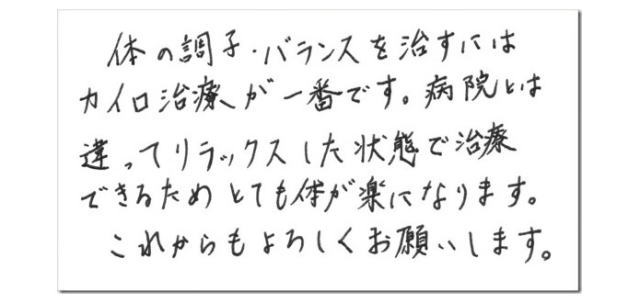 体の調子・バランスを治すには
カイロ治療が一番です。病院とは
違ってリラックスした状態で治療
できるためとても体が楽になります。
これからもよろしくお願いします。